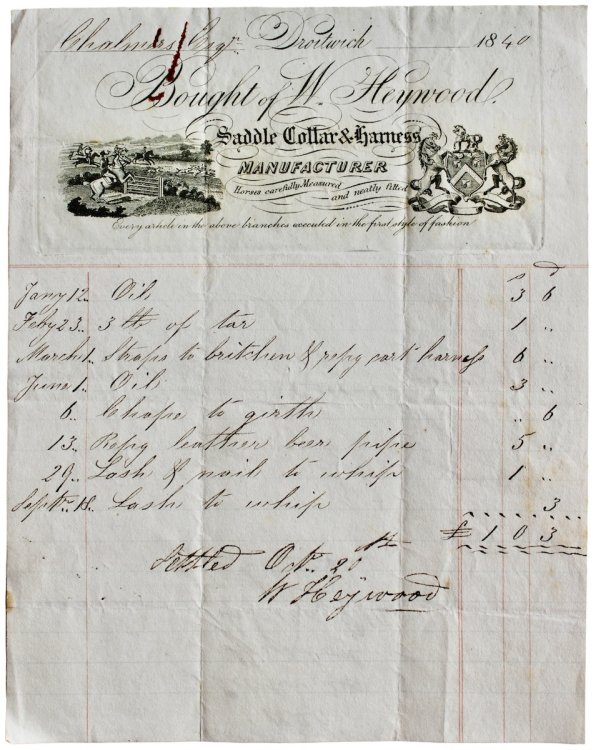 Chalmers Esqr. Droitwich 1840
Bought of W. Heywood.
Saddle Collar & Harness
MANUFACTURER
Horses carefully Measured and neatly fitted
Every article in the above branches executed in the first style of fashion
s d
Jany 12.. Oil 3 6
Feby 23.. 3 lb of tar 1 ..
March 1.. Straps to britchen & repg cart harness 6 ..
June 1.. Oil 3 ..
6.. Chape to girth .. 6
13.. Repg leather beer pipe 5 ..
29.. Lash & nail to whip 1 ..
Septr. 18.. Lash to whip .. 3
£ 1 0 3
Settled Oct. 20th
W Heywood